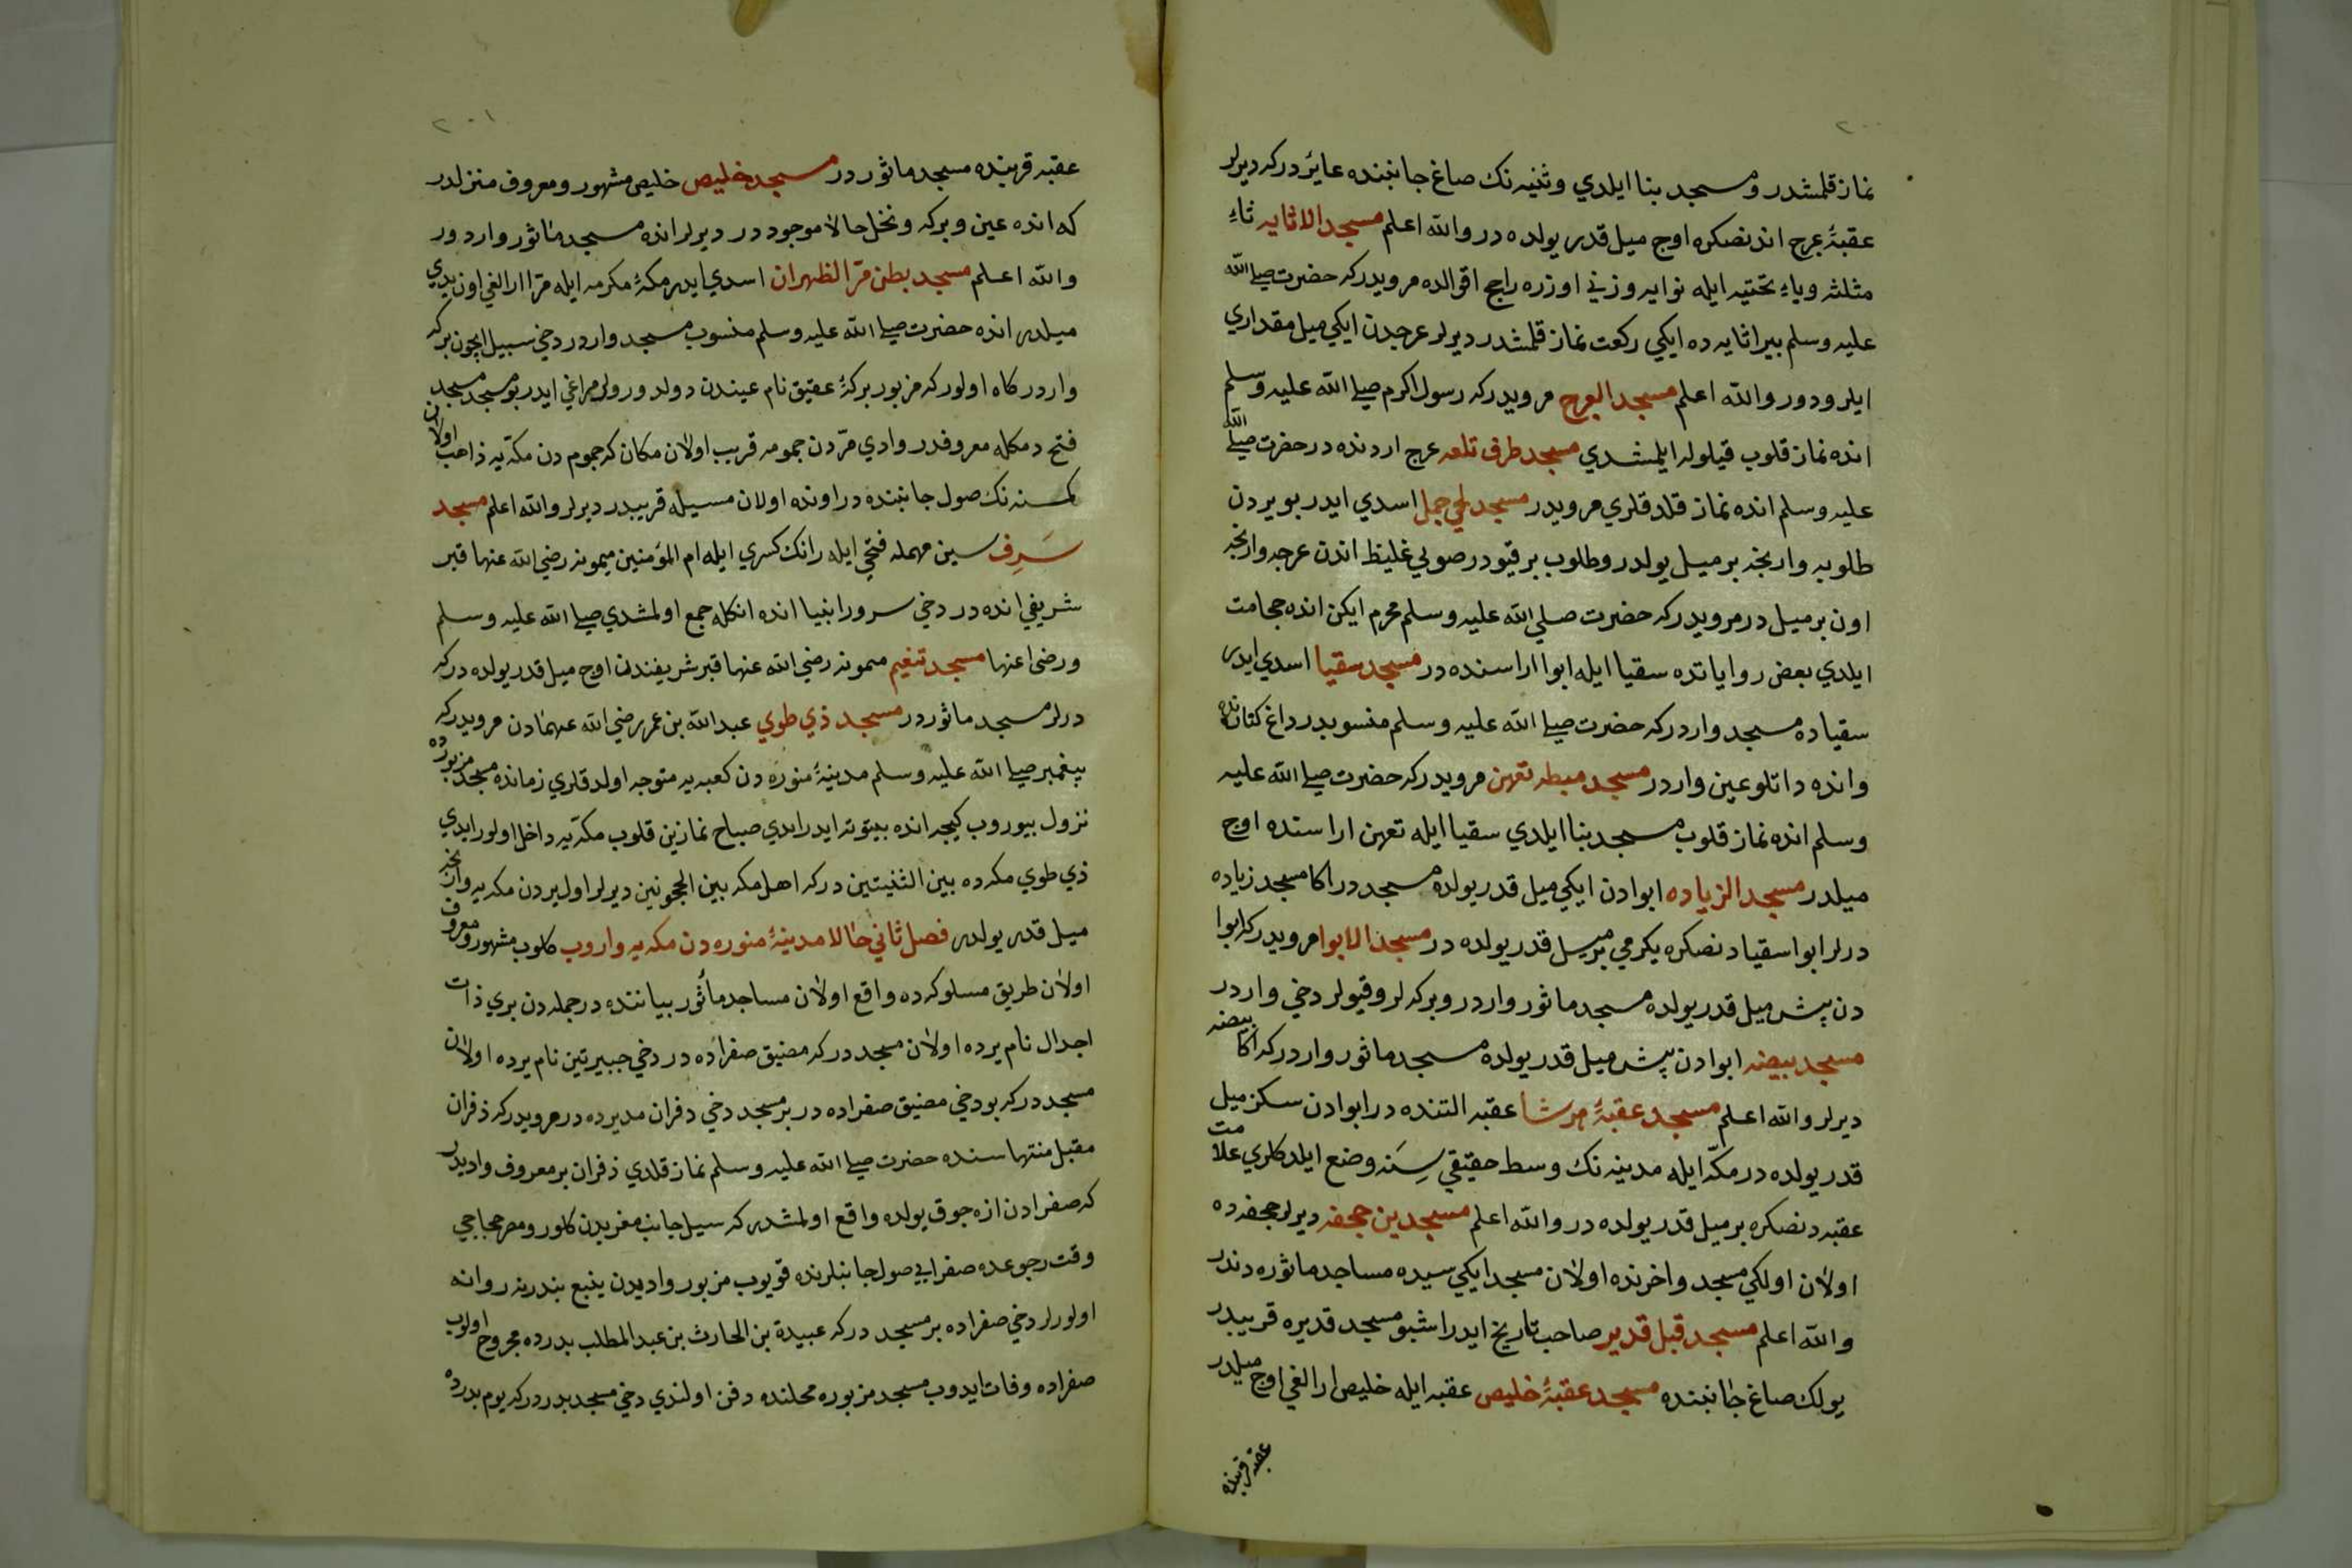 ٢٠٠
نماز قلمشدر و مسجد بنا ايلدي و ثنيه نك صاغ جانبنده عايردر كه ديرلر
عقبۀ عرج اندنصكره اوج ميل قدر يولده در والله اعلم مسجد الاثايه ثاء
مثلثه وياء تحتيه ايله نوايه وزني اوزره راجح اقوالده مرويدر كه حضرت صلى الله
عليه وسلم بير اثايه ده ايكي ركعت نماز قلمشدر ديرلر عرجدن ايكي ميل مقداري
ايلرودور والله اعلم مسجد العرج مرويدر كه رسول اكرم صلى الله عليه وسلم
انده نماز قلوب قيلوله ايلمشدي مسجد طرف تلعه عرج اردنده در حضرت صلى الله
عليه وسلم انده نماز قلدقلري مرويدر مسجد لحي جمل اسدي ايدر بو يردن
طلوبه وارنجه بر ميل يولدر وطلوب بر قيودر صويي غليظ اندن عرجه وارنجه
اون بر ميل در مرويدر كه حضرت صلي الله عليه وسلم محرم ايكن انده حجامت
ايلدي بعض رواياتده سقيا ايله ابوا اراسنده در مسجد سقيا اسدي ايدر
سقياده مسجد واردر كه حضرت صلى الله عليه وسلم منسوبدر داغ كنارنده
وانده داتلو عين واردر مسجد مبطه تعهن مرويدر كه حضرت صلى الله عليه
وسلم انده نماز قلوب مسجد بنا ايلدي سقيا ايله تعهن اراسنده اوج
ميلدر مسجد الزياده ابوادن ايكي ميل قدر يولده مسجد در اكا مسجد زياده
درلر ابوا سقيادنصكره يكرمي بر ميل قدر يولده در مسجد الابوا مرويدر كه ابوا
دن پش ميل قدر يولده مسجد ماثور واردر وبركه لر وقيولر دخي واردر
مسجد بيضه ابوادن پش ميل قدر يولده مسجد ماثور واردر كه اكا بيضه
ديرلر والله اعلم مسجد عقبۀ هرشا عقبه التنده در ابوادن سكز ميل
قدر يولده در مكّه ايله مدينه نك وسط حقيقي سنه وضع ايلدكلري علامت
عقبه دنصكره بر ميل قدر يولده در والله اعلم مسجدين جحفه ديرلر جحفه ده
اولان اولكي مسجد واخرنده اولان مسجد ايكيسيده مساجد ماثوره دندر
والله اعلم مسجد قبل قدير صاحب تاريخ ايدر اشبو مسجد قديره قريبدر
يولك صاغ جانبنده مسجد عقبۀ خليص عقبه ايله خليص ارالغي اوج ميلدر
عقبه قربنده
٢٠١
عقبه قربنده مسجد ماثور در مسجد خليص خليص مشهور ومعروف منزلدر
كه انده عين وبركه ونخل حالا موجود در ديرلر انده مسجد ماثور واردور
والله اعلم مسجد بطن مرّ الظهران اسدي ايدر مكۀ مكرمه ايله مرّ ارالغي اون يدي
ميلدر انده حضرت صلى الله عليه وسلم منسوب مسجد واردر دخي سبيل ايچون بركه
واردر كاه اولور كه مزبور بركۀ عقيق نام عيندن دولدورولر مراغي ايدر بو مسجد مسجد
فتح دمكله معروفدر وادي مرّدن جمومه قريب اولان مكان كه جموم دن مكّه يه ذاهب اولان
كمسنه نك صول جانبنده در اونده اولان مسيله قريبدر ديرلر والله اعلم مسجد
سَرِف سين مهمله فتحي ايله رانك كسري ايله ام المؤمنين ميمونه رضي الله عنها قبر
شريفي انده در دخي سرور انبيا انده انكله جمع اولمشدي صلى الله عليه وسلم
ورضى عنها مسجد تنعيم ميمونه رضي الله عنها قبر شريفندن اوج ميل قدر يولده در كه
درلر مسجد ماثور در مسجد ذي طوي عبد الله بن عمر رضي الله عنهمادن مرويدر كه
پيغمبر صلى الله عليه وسلم مدينۀ منوره دن كعبه يه متوجه اولدقلري زمانده مسجد مزبورده
نزول بيوروب كيجه انده بيتوته ايدر ايدي صباح نمازين قلوب مكّه يه داخل اولور ايدي
ذي طوي مكه ده بين الثنيتين در كه اهل مكه بين الحجونين ديرلر اول يردن مكه يه وارنجه
ميل قدر يولدر فصل ثاني حالا مدينۀ منوره دن مكه يه واروب كلوب مشهور ومعروف
اولان طريق مسلوكه ده واقع اولان مساجد مأثور بياننده در جمله دن بري ذات
اجدال نام يرده اولان مسجد در كه مضيق صفراده در دخي جبيرتين نام يرده اولان
مسجد در كه بو دخي مضيق صفراده در بر مسجد دخي دفران مديرده در مرويدر كه ذفران
مقبل منتهاسنده حضرت صلى الله عليه وسلم نماز قلدي ذفران بر معروف واديدر
كه صفرادن ازه جوق يولده واقع اولمشدر كه سيل جانب مغربدن كلور ومصر حجاجي
وقت رجوعده صفرايي صول جانبلرنده قويوب مزبور واديدن ينبع بندرينه روانه
اولورلر دخي صفراده بر مسجد در كه عبيدة بن الحارث بن عبد المطلب بدرده مجروح اولوب
صفراده وفات ايدوب مسجد مزبوره محلنده دفن اولندي دخي مسجد بدر در كه يوم بدرده